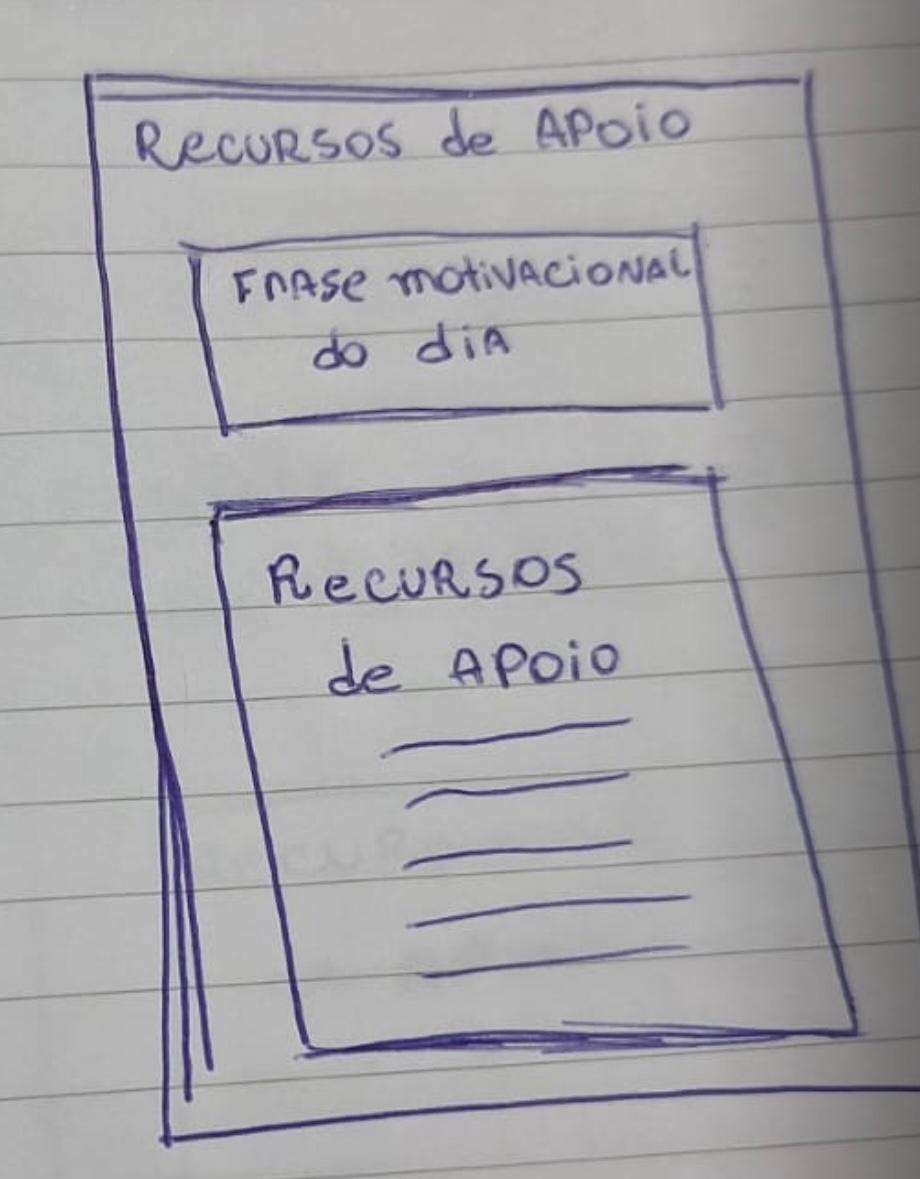 Recursos de Apoio
Frase motivacional
do dia
Recursos
de Apoio